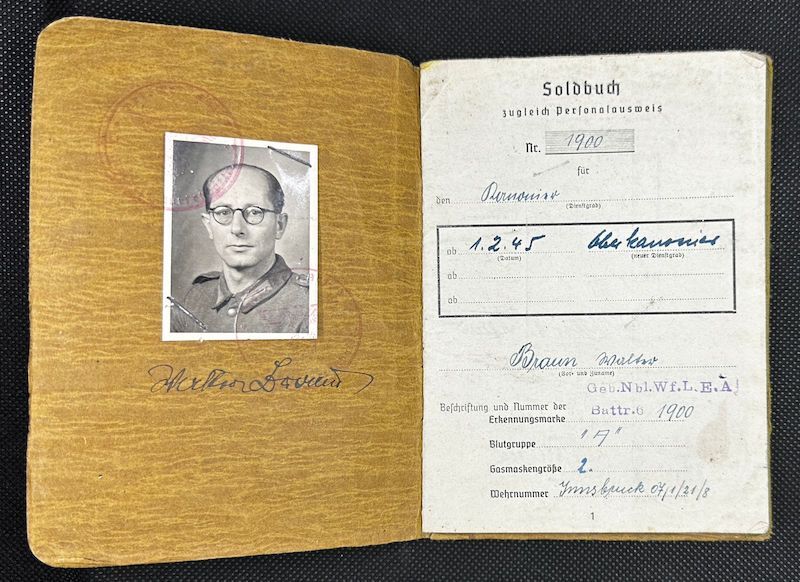 Walter Braun
Soldbuch
zugleich Personalausweis
Nr. 1900
für
den Kanonier
(Dienstgrad)
ab 1.2.45 Oberkanonier
(Datum) (neuer Dienstgrad)
ab
ab
Braun Walter
(Vor- und Zuname)
Geb.Nbl.Wf.L.E.A!
Beschriftung und Nummer der Battr.6
Erkennungsmarke 1900
Blutgruppe "A"
Gasmaskengröße 2.
Wehrnummer Innsbruck 07/1/21/8
1